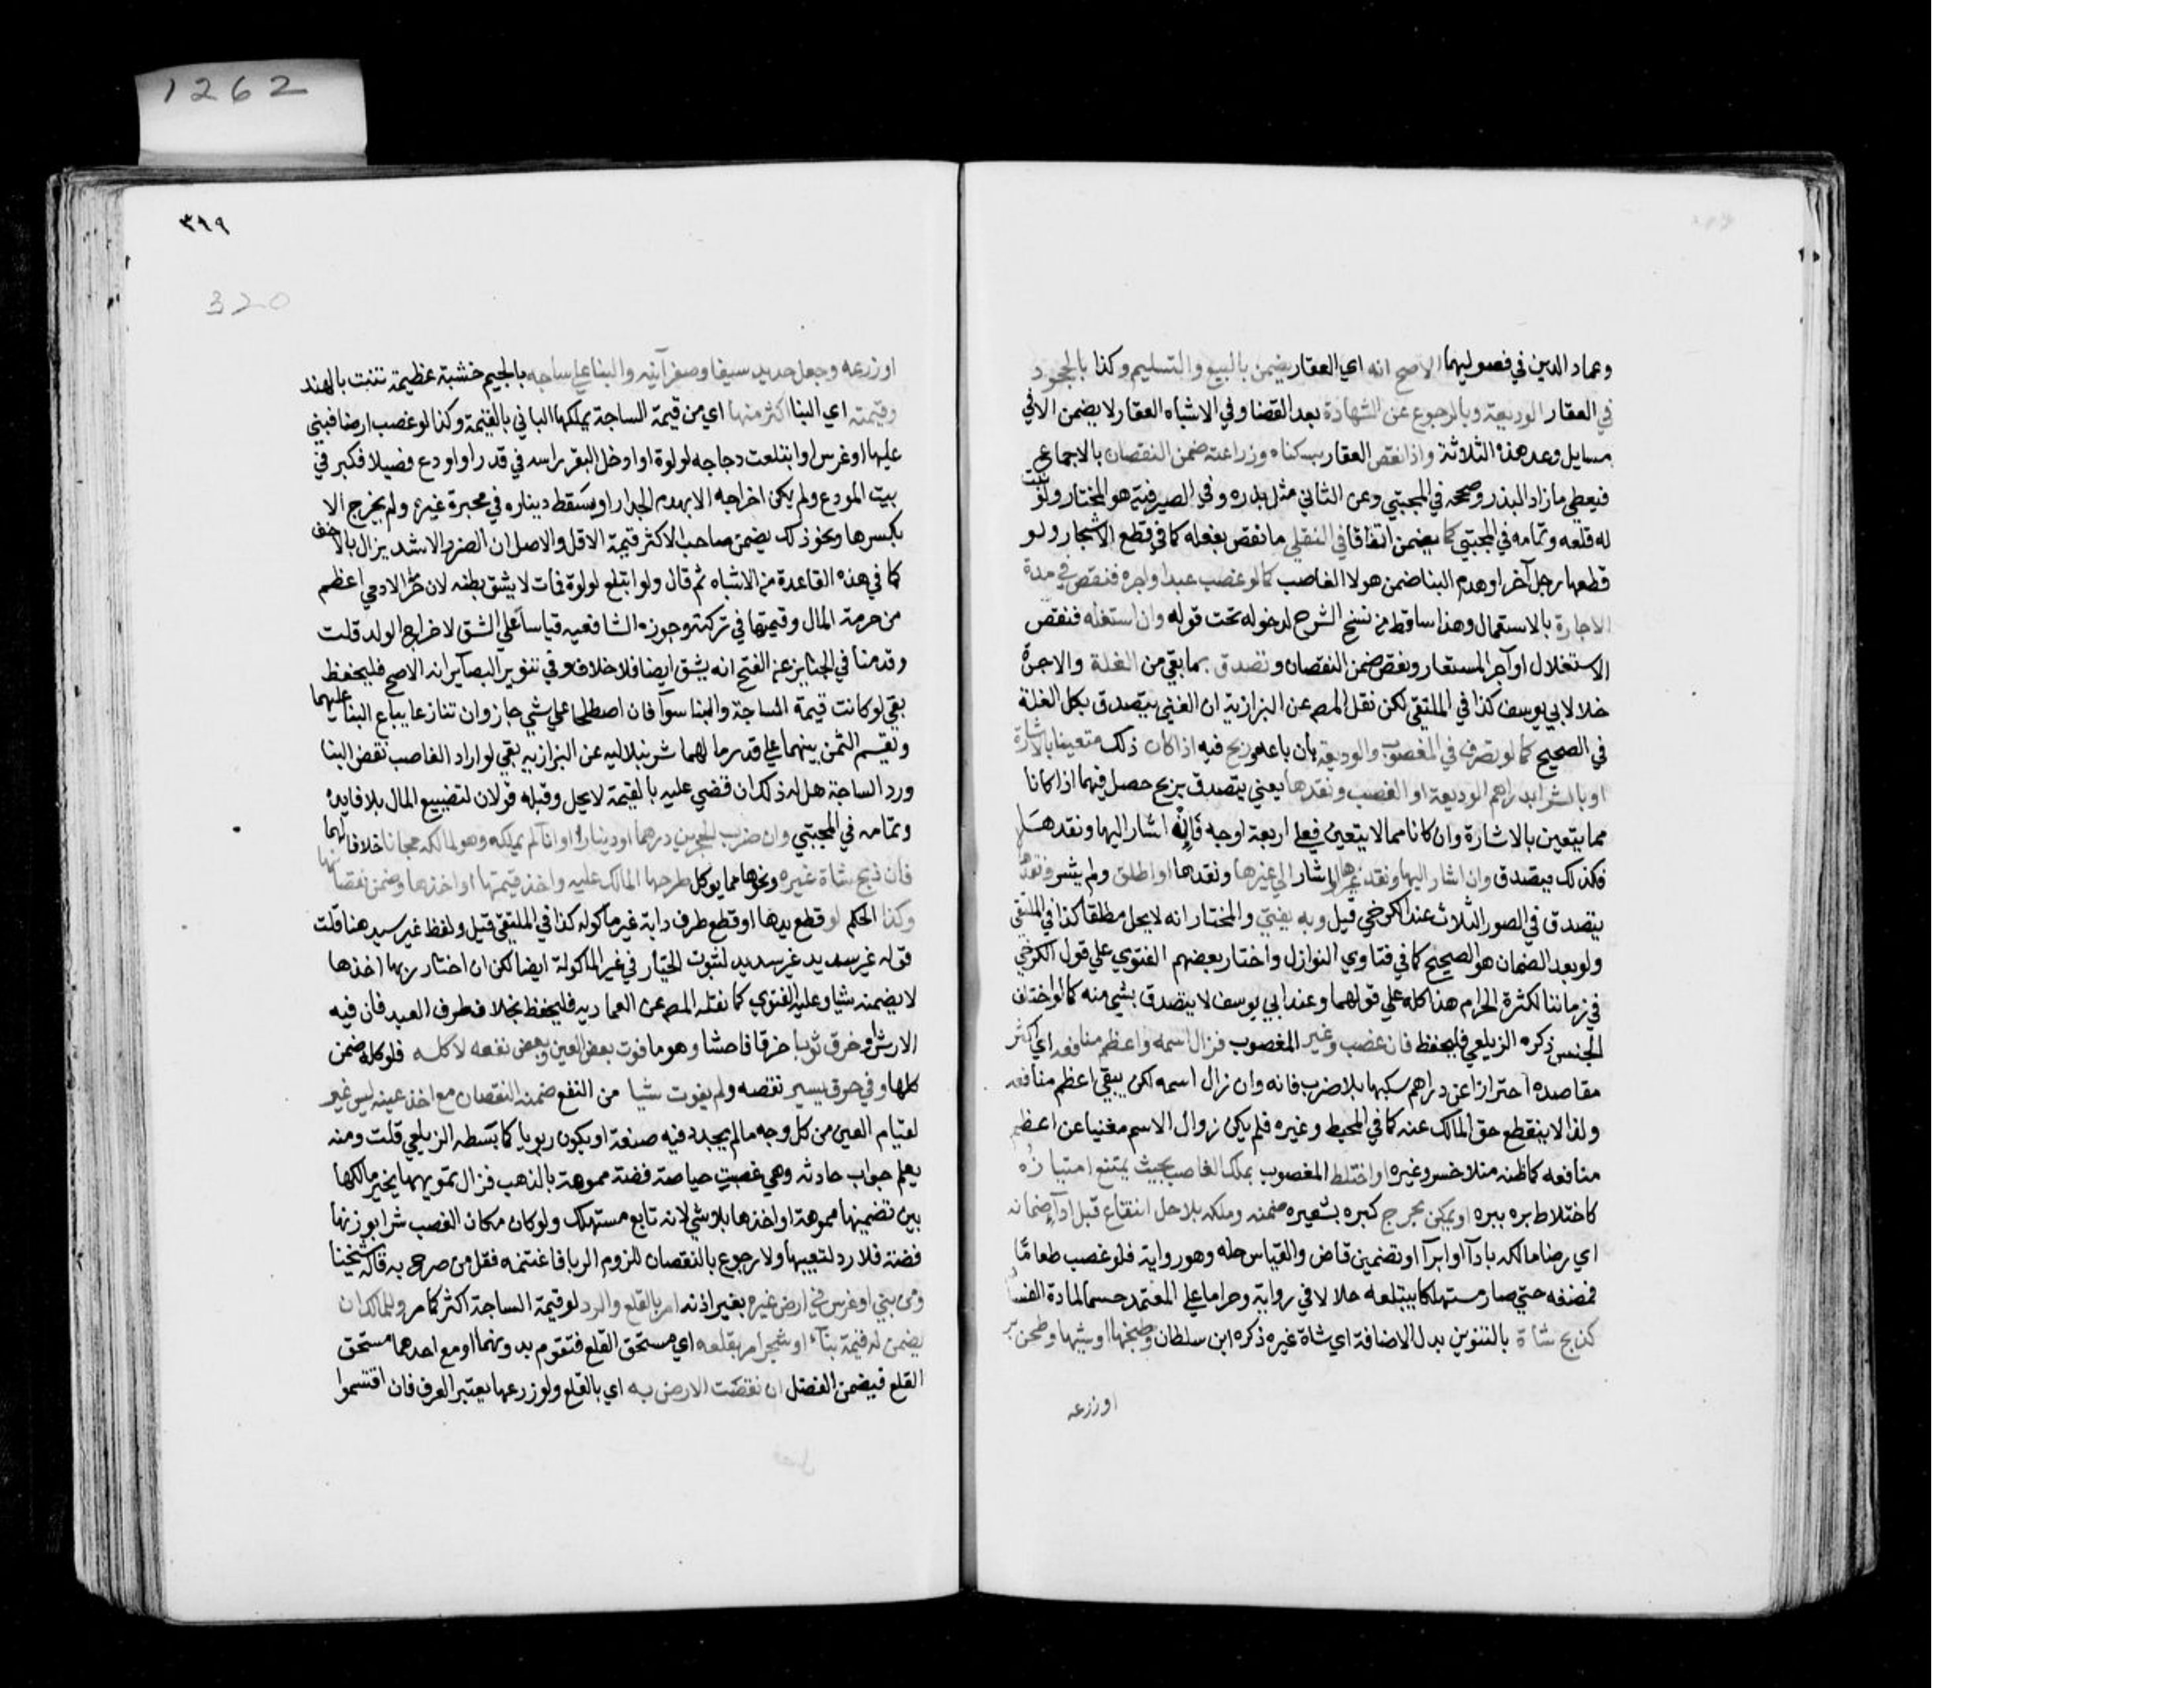 1262
٣١٩
320
وعماد الدين في فصوليهما الاصح انه اي العقار يضمن بالبيع والتسليم وكذا بالجحود
في العقار الوديعة وبالرجوع عن الشهادة بعد القضا وفي الاشباه العقار لا يضمن الا في
مسايل وعد هذه الثلاثة واذا نقص العقار بسكناه وزراعته ضمن النقصان بالاجماع
فيعطي ما زاد البذر وصححه في المجتبي وعن الثاني مثل بذره وفي الصيرفية هو المختار ولو نبت
له قلعه وتمامه في المجتبي كما يضمن اتفاقا في النقلي ما نقص بفعله كما في قطع الاشجار ولو
قطعها رجل آخر او هدم البنا ضمن هو لا الغاصب كما لو غصب عبدا واجره فنقص في مدة
الاجارة بالاستعمال وهذا ساقط من نسخ الشرح لدخوله تحت قوله وان استغله فنقص
الاستغلال او آجر المستعار ونقص ضمن النقصان وتصدق بما بقي من الغلة والاجرة
خلا لابي يوسف كذا في الملتقي لكن نقل المص عن البزازية ان الغني يتصدق بكل الغلة
في الصحيح كما لو تصرف في المغصوب والوديعة بأن باعه وربح فيه اذا كان ذلك متعينا بالاشارة
او بالشرا بدراهم الوديعة او الغصب ونقدها يعني يتصدق بربح حصل فيهما اذا كانا
مما يتعين بالاشارة وان كانا مما لا يتعين فعلي اربعة اوجه فان اشار اليها ونقدها
فكذلك يتصدق وان اشار اليها ونقد غيرها او اشار الي غيرها ونقدها او اطلق ولم يشر ونقدها
يتصدق في الصور الثلاث عند الكرخي قيل وبه يفتي والمختار انه لا يحل مطلقا كذا في الملتقي
ولو بعد الضمان هو الصحيح كما في فتاوي النوازل واختار بعضهم الفتوي علي قول الكرخي
في زماننا لكثرة الحرام هذا كله علي قولهما وعند ابي يوسف لا يتصدق بشي منه كما لو اختلف
الجنس ذكره الزيلعي فليحفظ فان غصب وغير المغصوب فزال اسمه واعظم منافعه اي اكثر
مقاصده احترازا عن دراهم سبكها بلا ضرب فانه وان زال اسمه لكن يبقي اعظم منافعه
ولذا لا ينقطع حق المالك عنه كما في المحيط وغيره فلم يكن زوال الاسم مغنيا عن اعظم
منافعه كما ظنه منلا خسرو وغيره او اختلط المغصوب بملك الغاصب بحيث يمتنع امتيازه
كاختلاط بره ببره او يمكن بحرج كبره بشعيره ضمنه وملكه بلا حل انتفاع قبل اداء ضمانه
اي رضا مالكه بادآ او ابرآ او تضمين قاض والقياس حله وهو رواية فلو غصب طعاما
فمضغه حتي صار مستهلكا يبتلعه حلالا في رواية وحراما علي المعتمد حسما لمادة الفساد
كذبح شاة بالتنوين بدل الاضافة اي شاة غيره ذكره ابن سلطان وطبخها او شيها وطحن بر
او زرعه
او زرعه وجعل حديد سيفا وصفر آنيه والبنا علي ساجه بالجيم خشبة عظيمة تنبت بالهند
وقيمته اي البنا اكثر منها اي من قيمة الساجة يملكها الباني بالقيمة وكذا لو غصب ارضا فبني
عليها او غرس او ابتلعت دجاجه لولوة او ادخل البقر راسه في قدر او اودع فصيلا فكبر في
بيت المودع ولم يكن اخراجه الا بهدم الجدار او سقط ديناره في محبرة غيره ولم يخرج الا
بكسرها ونحو ذلك يضمن صاحب الاكثر قيمة الاقل والاصل ان الضرر الاشد يزال بالاخف
كما في هذه القاعدة من الاشباه ثم قال ولو ابتلع لولوة فمات لا يشق بطنه لان حرمة الادمي اعظم
من حرمة المال وقيمتها في تركته وجوزه الشافعيه قياسا علي الشق لاخراج الولد قلت
وقدمنا في الجنايز عن الفتح انه يشق ايضا فلا خلاف وفي تنوير البصاير انه الاصح فليحفظ
بقي لو كانت قيمة الساجة والبنا سوآ فان اصطلحا علي شي جاز وان تنازعا يباع البنا عليهما
ويقسم الثمن بينهما علي قدر ما لهما شرنبلاليه عن البزازيه بقي لو اراد الغاصب نقض البنا
ورد الساجة هل له ذلك ان قضي عليه بالقيمة لا يحل وقبله قولان لتضييع المال بلا فايده
وتمامه في المجتبي وان ضرب الحجرين درهما او دينارا او انآ لم يملكه وهو لمالكه مجانا خلافا لهما
فان ذبح شاة غيره ونحوها مما يوكل طرحها المالك عليه واخذ قيمتها او اخذها وضمن نقصانها
وكذا الحكم لو قطع يدها او قطع طرف دابة غير ماكوله كذا في الملتقي قيل ولفظ غير سديد هنا قلت
قوله غير سديد غير سديد لثبوت الخيار في غير الماكولة ايضا لكن ان اختار ربها اخذها
لا يضمنه شيا وعليه الفتوي كما نقله المص عن العماديه فليحفظ بخلاف طرف العبد فان فيه
الارش او خرق ثوبا خرقا فاحشا وهو ما فوت بعض العين وبعض نفعه لا كله فلو كله ضمن
كلها وفي خرق يسير نقصه ولم يفوت شيا من النفع ضمنه النقصان مع اخذ عينه ليس غير
لقيام العين من كل وجه ما لم يجدد فيه صنعة او يكون ربويا كما بسطه الزيلعي قلت ومنه
يعلم جواب حادثه وهي غصبت حياصة فضة مموهة بالذهب فزال تمويهها يخير مالكها
بين تضمينها مموهة او اخذها بلا شي لانه تابع مستهلك ولو كان مكان الغصب شرا بوزنها
فضة فلا رد لتعيبها ولا رجوع بالنقصان للزوم الربا فاغتنمه فقل من صرح به قاله شيخنا
ومن بني او غرس في ارض غيره بغير اذنه امر بالقلع والرد لو قيمة الساجة اكثر كما مر وللمالك ان
يضمن له قيمة بنآء او شجر امر بقلعه اي مستحق القلع فتقوم بدونهما او مع احدهما مستحق
القلع فيضمن الفضل ان نقصت الارض به اي بالقلع ولو زرعها يعتبر العرف فان اقتسموا